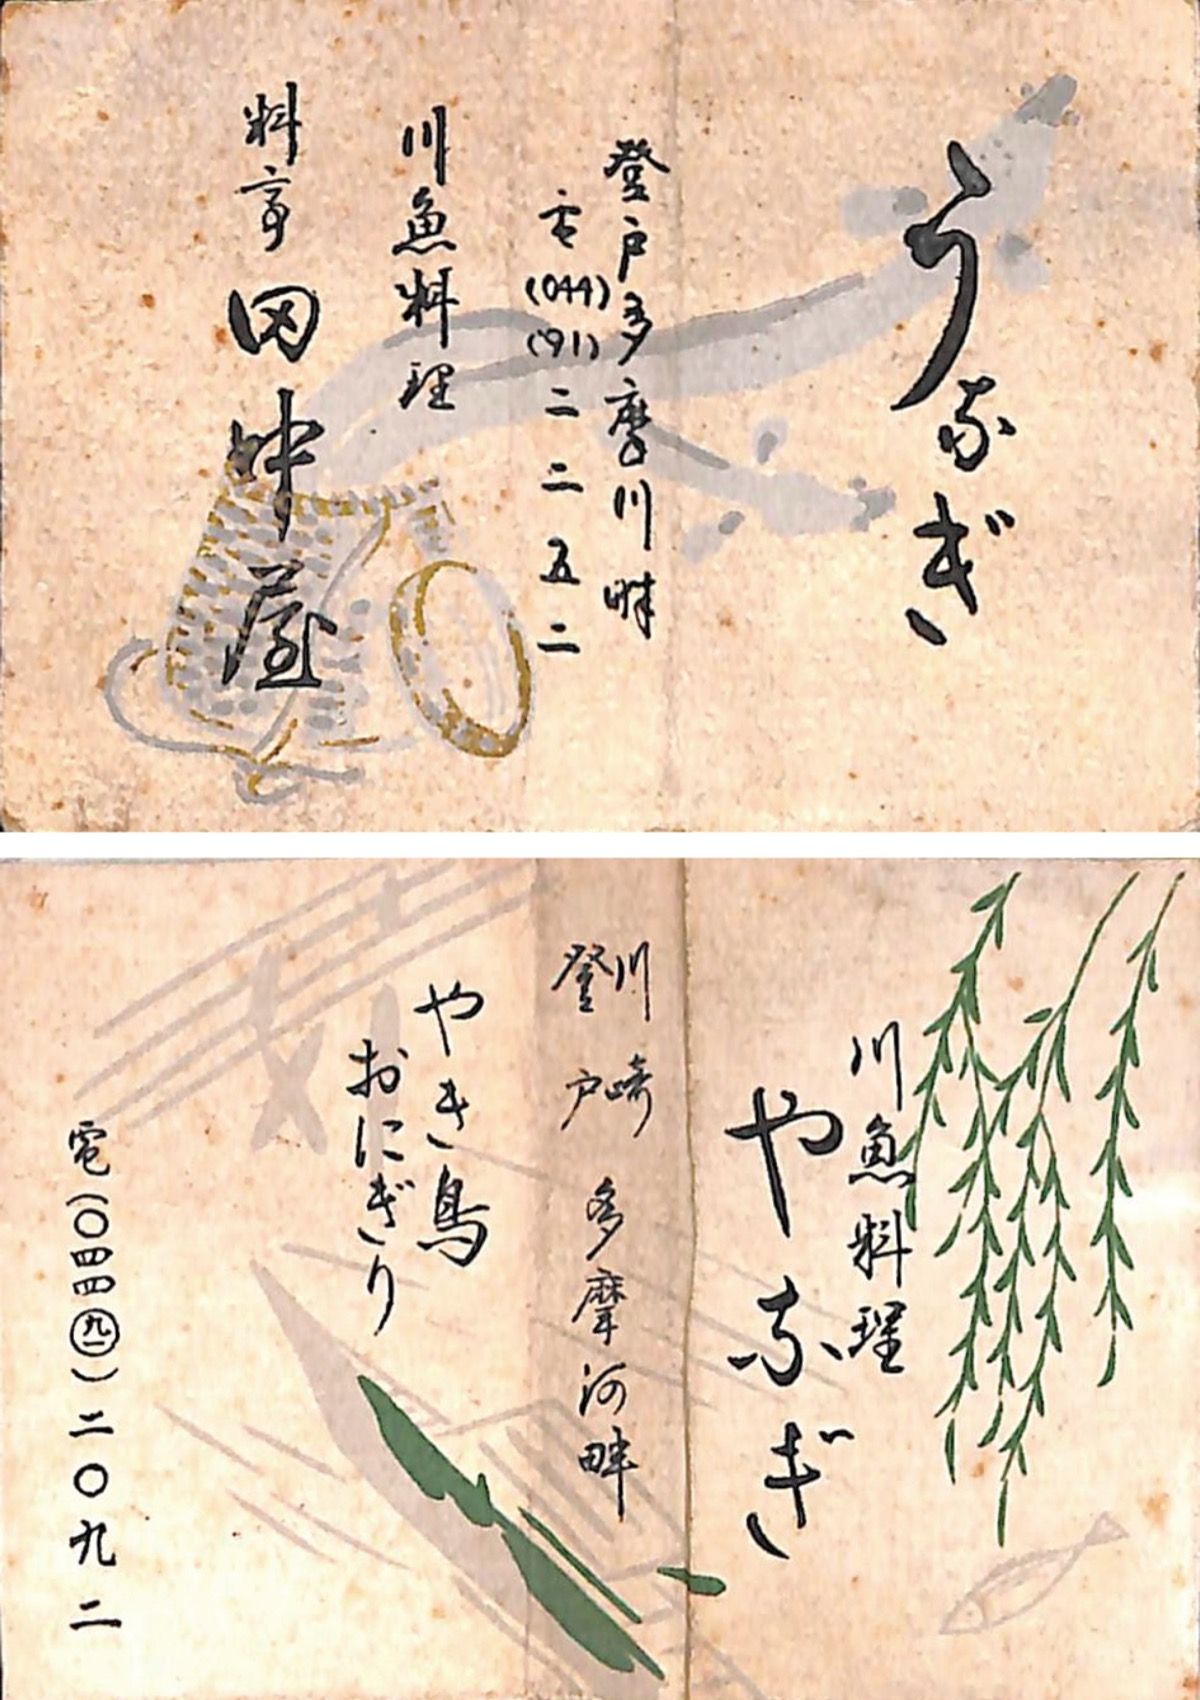 うなぎ
登戸多摩川畔
電(044)(91)二二五二
川魚料理
料亭 田中屋
川魚料理
やなぎ
川崎
登戸 多摩河畔
やき鳥
おにぎり
電(〇四四㊈一)二〇九二